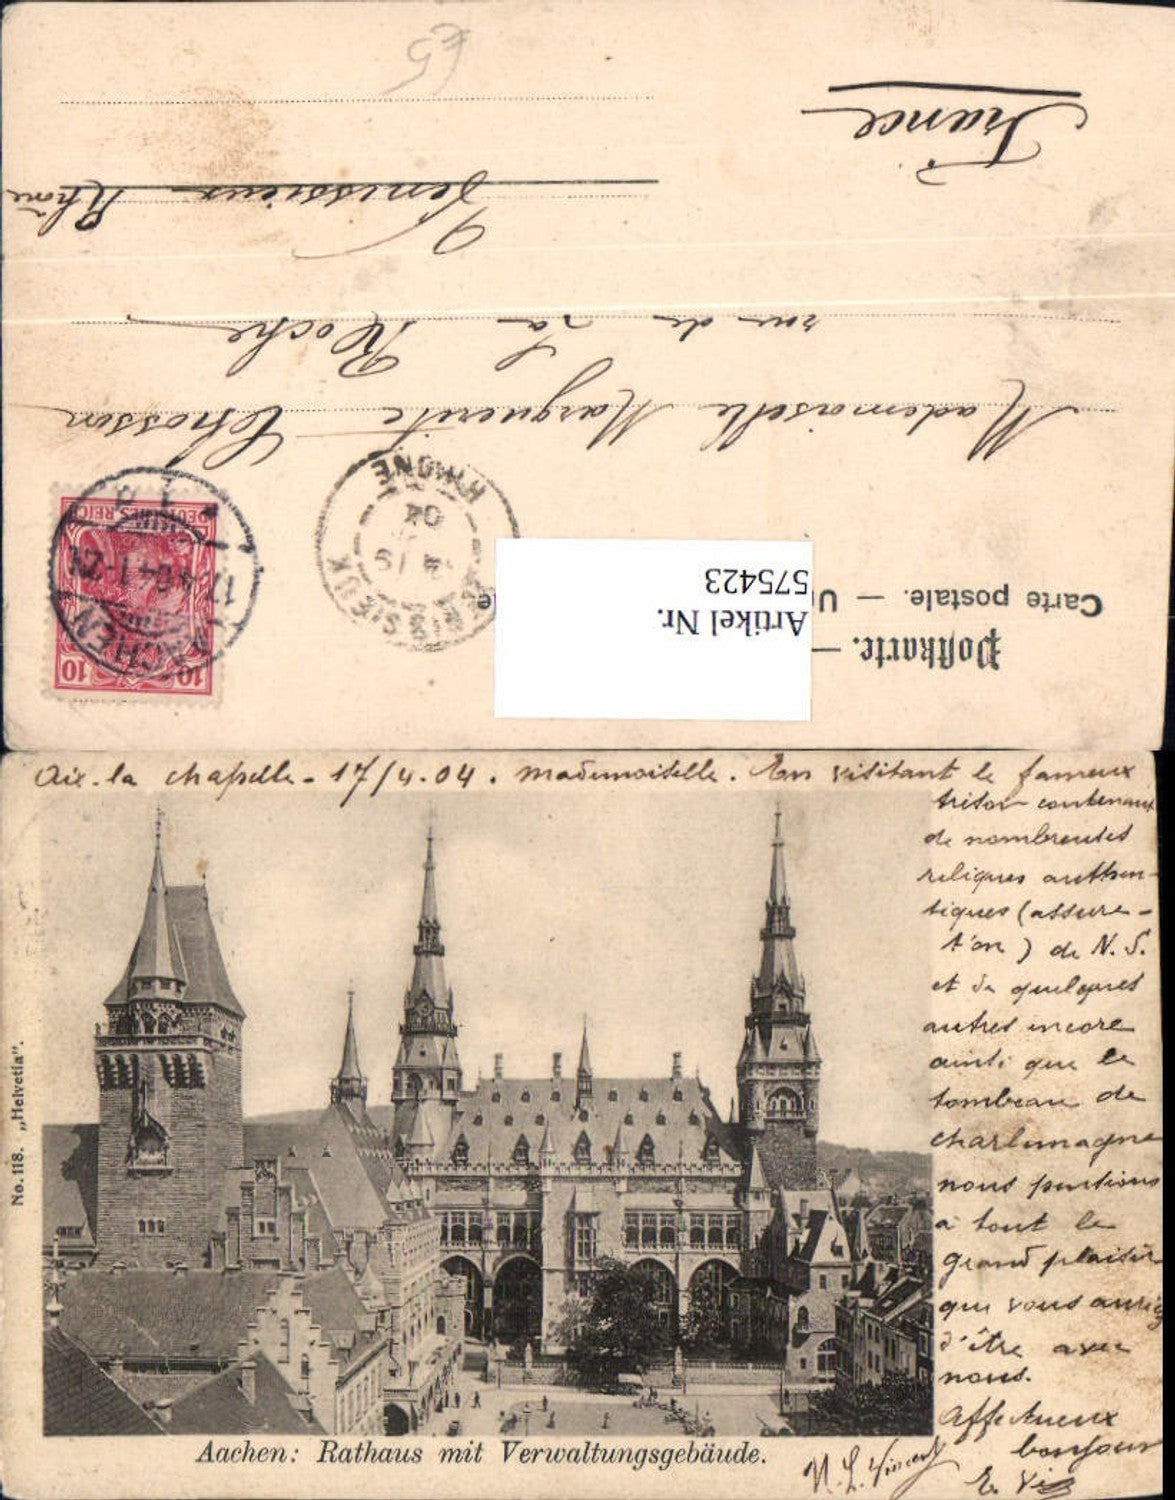 Postkarte. —
Carte postale. — U
Artikel Nr.
575423
DEUTSCHES REICH
10 10
AACHEN
17.4.04.1-2N
RHONE
04
Mademoiselle Marguerite
rue de La Roche
Venissieux Rhône
France
£5
Aix-la chapelle - 17/4.04. Mademoiselle. En visitant le fameux
trésor contenant
de nombreuses
reliques authen-
tiques (assure-
t'on) de N. S.
et de quelques
autres encore
ainsi que le
tombeau de
charlemagne
nous pensions
à tout le
grand plaisir
que vous auriez
d'être avec
nous.
Affectueux
bonjour
No. 118. „Helvetia“.
Aachen: Rathaus mit Verwaltungsgebäude.